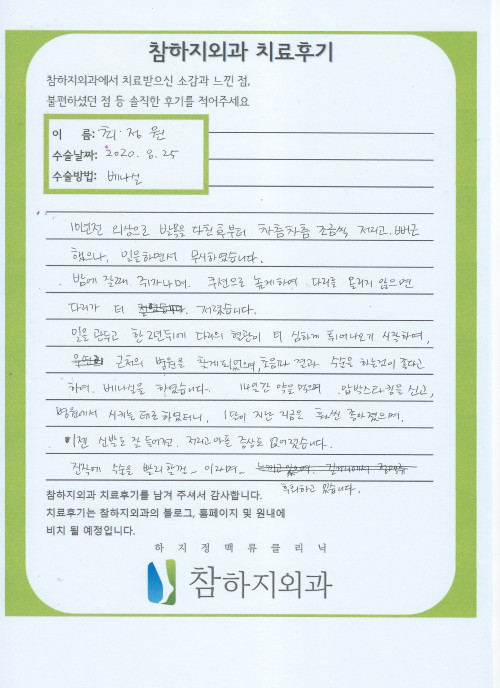 참하지외과 치료후기
참하지외과에서 치료받으신 소감과 느낀 점,
불편하셨던 점 등 솔직한 후기를 적어주세요
이 름: 최·정원
수술날짜: 2020. 8. 25
수술방법: 베나실
10년전 외상으로 발목을 다친 후부터 차츰차츰 조금씩 저리고. 뻐근
했으나, 일을하면서 무시하였습니다.
밤에 잘때 쥐가나며. 쿠션으로 높게하여. 다리를 올리지 않으면
다리가 더 저렸습니다.
일을 관두고 한 2년뒤에 다리의 혈관이 더 심하게 튀어나오기 시작하여,
근처의 병원을 찾게되었으며, 초음파 결과 수술을 하는것이 좋다고
하여. 베나실을 하였습니다. 14일간 약을 먹으며 .압박스타킹을 신고,
병원에서 시키는 데로 하였더니, 1달이 지난 지금은 훨씬 좋아졌으며.
이젠 신발도 잘 들어가고. 저리고 아픈 증상도 없어졌습니다.
진작에 수술을 빨리할껄~ 이라며~
후회하고 있습니다.
참하지외과 치료후기를 남겨 주셔서 감사합니다.
치료후기는 참하지외과의 블로그, 홈페이지 및 원내에
비치 될 예정입니다.
하지정맥류클리닉
참하지외과